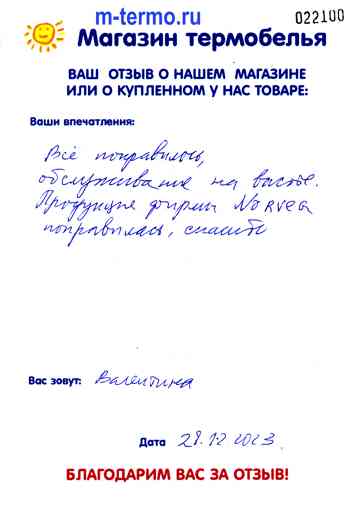 m-termo.ru
022100
Магазин термобелья
ВАШ ОТЗЫВ О НАШЕМ МАГАЗИНЕ
ИЛИ О КУПЛЕННОМ У НАС ТОВАРЕ:
Ваши впечатления:
Всё понравилось,
обслуживание на высоте.
Продукция фирмы Norveg
понравилась, спасибо
Вас зовут: Валентина
Дата 28.12 2023.
БЛАГОДАРИМ ВАС ЗА ОТЗЫВ!